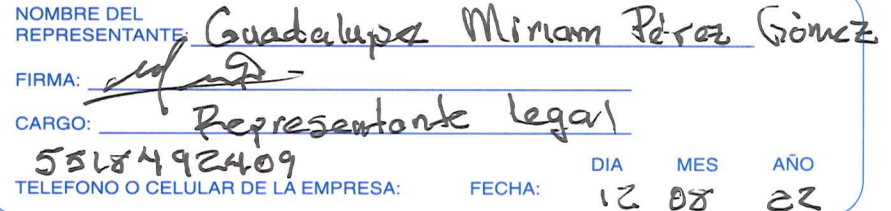 NOMBRE DEL
REPRESENTANTE: Guadalupe Miriam Pérez Gómez
FIRMA:
CARGO: Representante Legal
5518492409
TELEFONO O CELULAR DE LA EMPRESA: FECHA: DIA MES AÑO
12 08 22